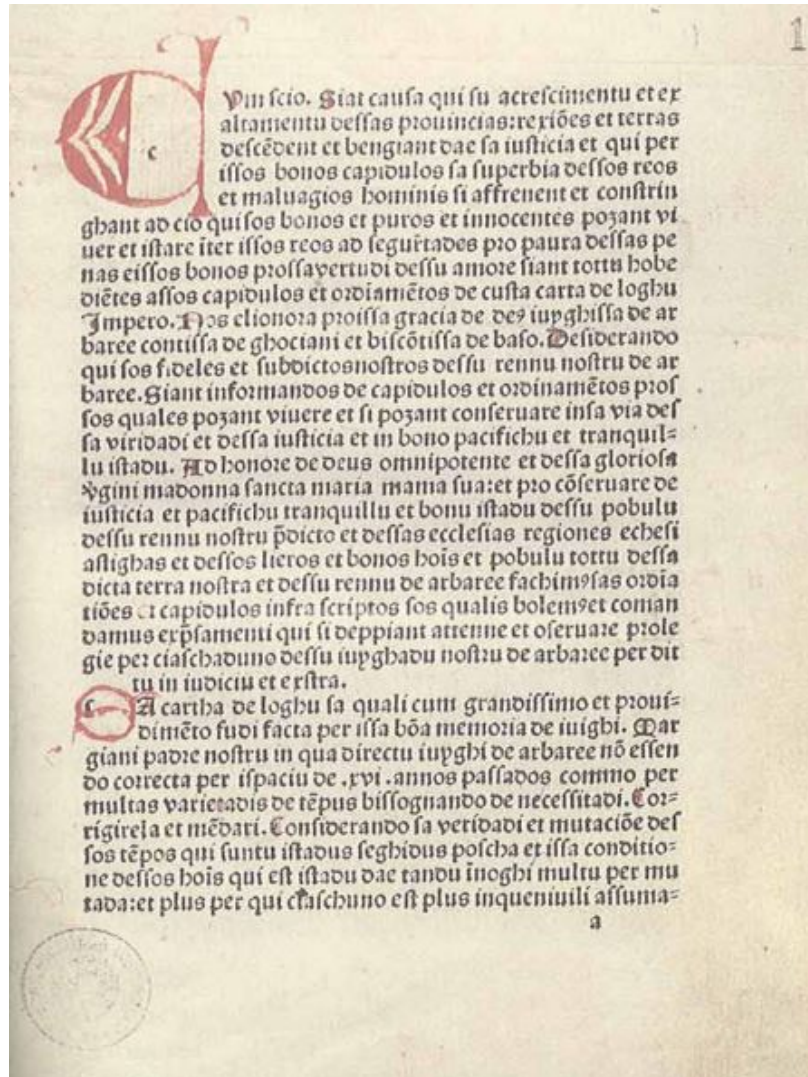 1
CVm scio. Siat causa qui su acrescimentu et ex
altamentu dessas prouincias:rexiões et terras
descẽdent et bengiant dae sa iusticia et qui per
issos bonos capidulos sa superbia dessos reos
et maluagios hominis si affrenent et constrin
ghant ad cio qui sos bonos et puros et innocentes pozant vi
uer et istare ĩter issos reos ad segurtades pro paura dessas pe
nas eissos bonos prossavertudi dessu amore siant tottu hobe
diẽtes assos capidulos et ordiamẽtos de custa carta de loghu
Impero. Nos elionora proissa gracia de deꝯ iuyghissa de ar
baree contissa de ghociani et biscõtissa de baso. Desiderando
qui sos fideles et subdictosnostros dessu rennu nostru de ar
baree. Siant informandos de capidulos et ordinamẽtos pros
sos quales pozant viuere et si pozant conseruare insa via des
sa viridadi et dessa iusticia et in bono pacifichu et tranquil=
lu istadu. Ad honore de deus omnipotente et dessa gloriosa
v̾gini madonna sancta maria mama sua:et pro cõseruare de
iusticia et pacifichu tranquillu et bonu istadu dessu pobulu
dessu rennu nostru p̃dicto et dessas ecclesias regiones echesi
astighas et dessos lieros et bonos hoĩs et pobulu tottu dessa
dicta terra nostra et dessu rennu de arbaree fachimꝯsas ordia
tiões et capidulos infra scriptos sos qualis bolemꝯet coman
damus exp̃samenti qui si deppiant attenne et oseruare prole
gie per ciaschaduno dessu iuyghadu nostru de arbaree per dit
tu in iudiciu et exstra.
SA cartha de loghu sa quali cum grandissimo et proui=
dimẽto fudi facta per issa bõa memoria de iuighi. Mar
giani padre nostru in qua directu iuyghi de arbaree nõ essen
do correcta per ispaciu de .xvi .annos passados commo per
multas varietadis de tẽpus bissognando de necessitadi. Cor=
rigirela et mẽdari. Considerando sa veridadi et mutaciõe des
sos tẽpos qui suntu istadus seghidus poscha et issa conditio=
ne dessos hoĩs qui est istadu dae tandu ĩnoghi multu per mu
tada:et plus per qui ciaschuno est plus inqueniuili assuma=
a